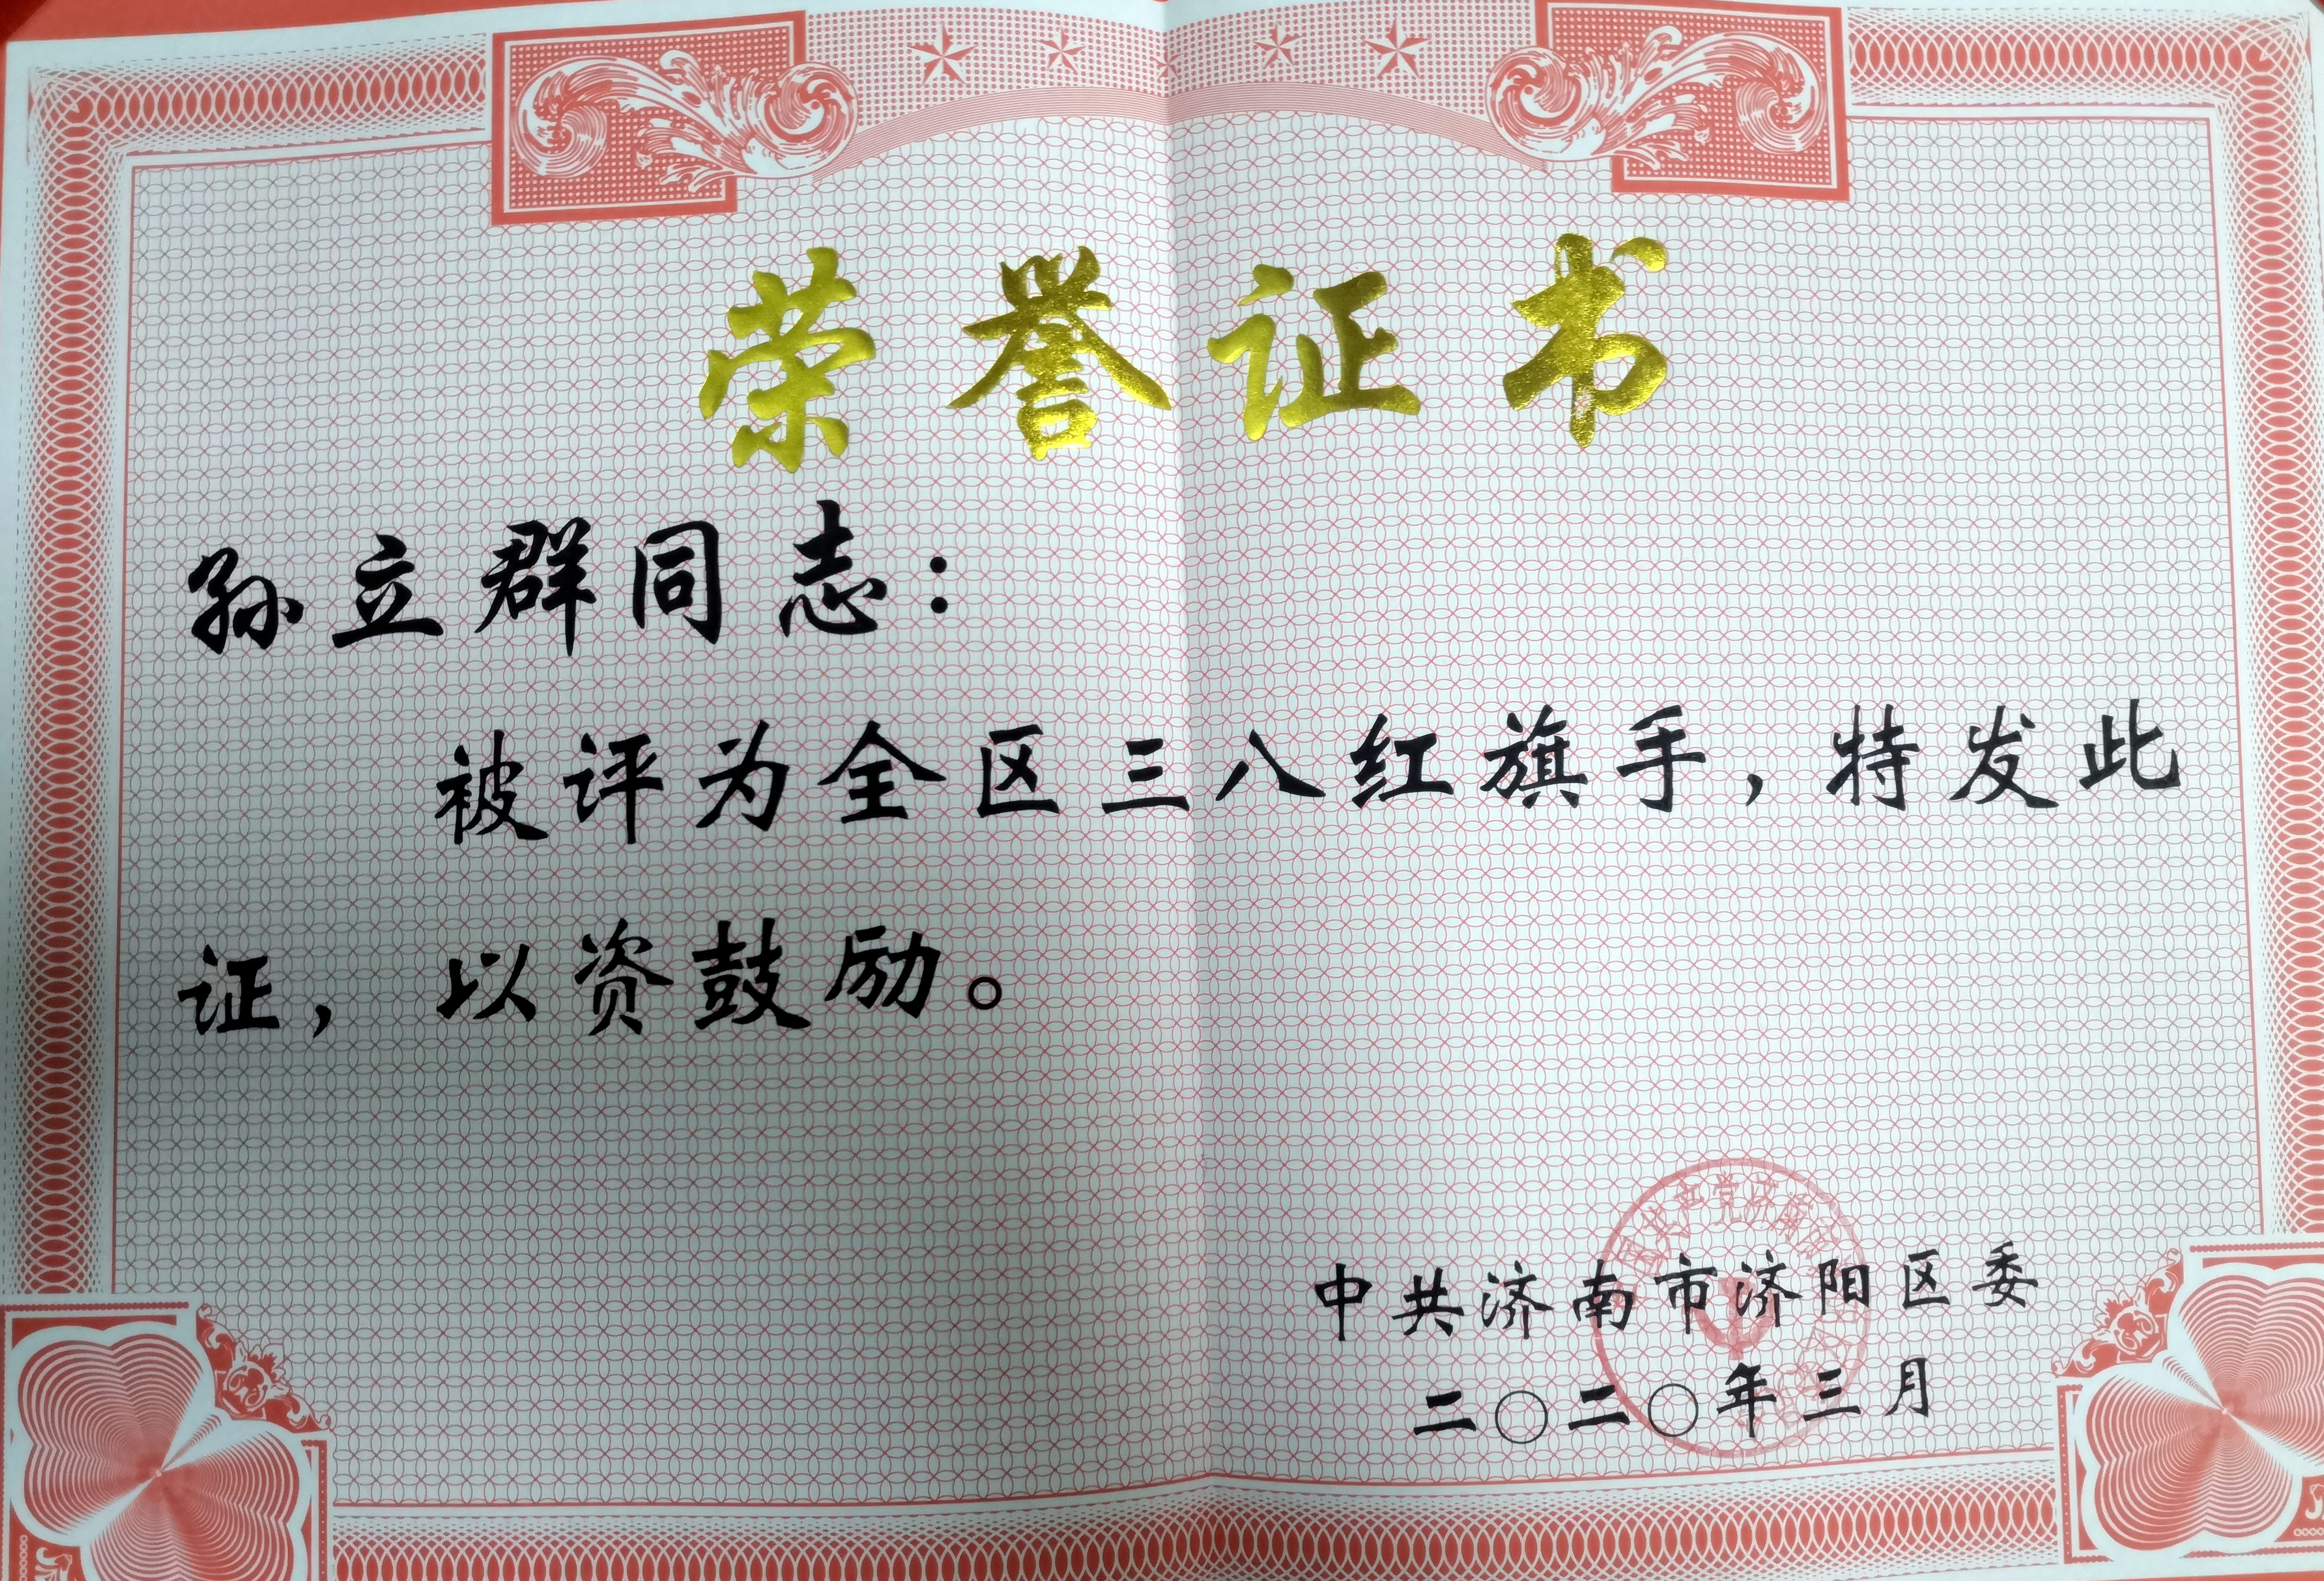 荣誉证书
孙立群同志：
被评为全区三八红旗手，特发此
证，以资鼓励。
中共济南市济阳区委
二〇二〇年三月